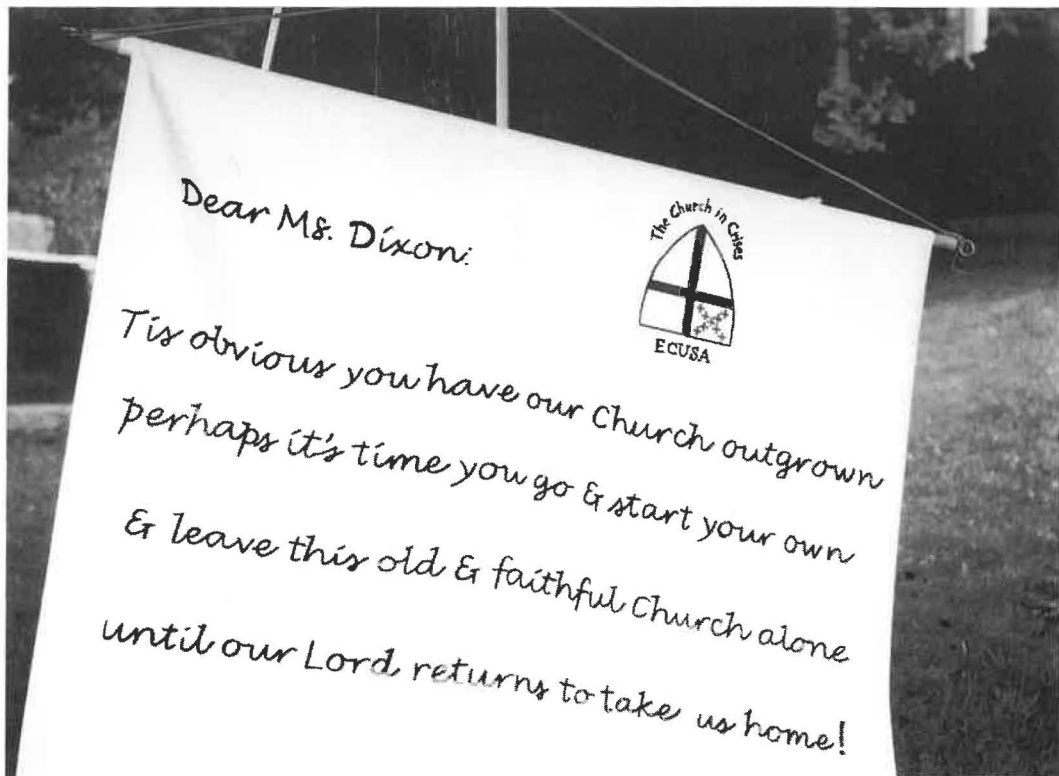 Dear Ms. Dixon:
The Church in Crises
ECUSA
Tis obvious you have our Church outgrown
perhaps it's time you go & start your own
& leave this old & faithful Church alone
until our Lord returns to take us home!